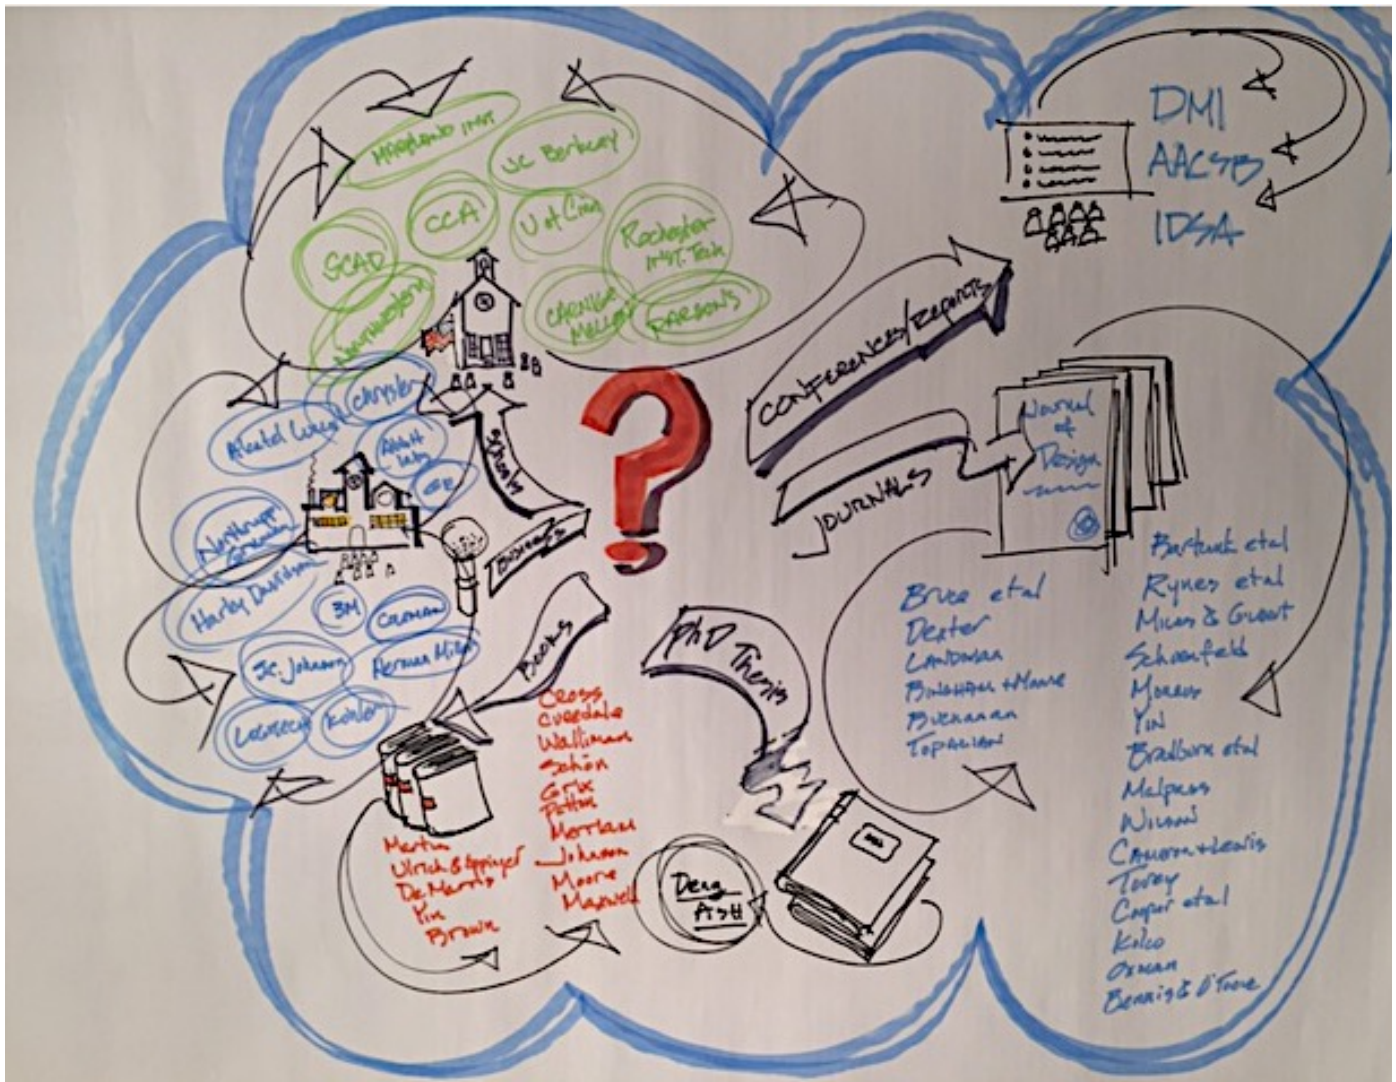 MARYLAND INST
UC Berkeley
CCA
U of Cinn
SCAD
Rochester
INST. Tech
Northwestern
CARNIGE
MELLON
PARSON'S
DMI
AACSB
IDSA
CONFERENCES/REPORTS
JOURNALS
Journal
of
Design
Schools
Business
Books
PhD Thesis
Chrysler
Alcatel Lucent
GE
Northrupp
Grumman
Harley Davidson
3M
COLEMAN
SC. Johnson
Herman Miller
LOGITECH
Kohler
Cross
Curedale
Walliman
Schön
Grix
Patton
Merriam
Johnson
Moore
Maxwell
Martin
Ulrich & Eppinger
De Marris
Yin
Brown
Deng
ASH
Bruce etal
Dexter
LANDMAN
BINGHAM + Moore
Buchanan
TOPALIAN
Bartunek etal
Rynes etal
Schoenfeld
Morris
Yin
Bradburn etal
Malpass
Wilson
CAMERON + Lewis
Torey
Kolko
Oxman
Bennis & O'Toole